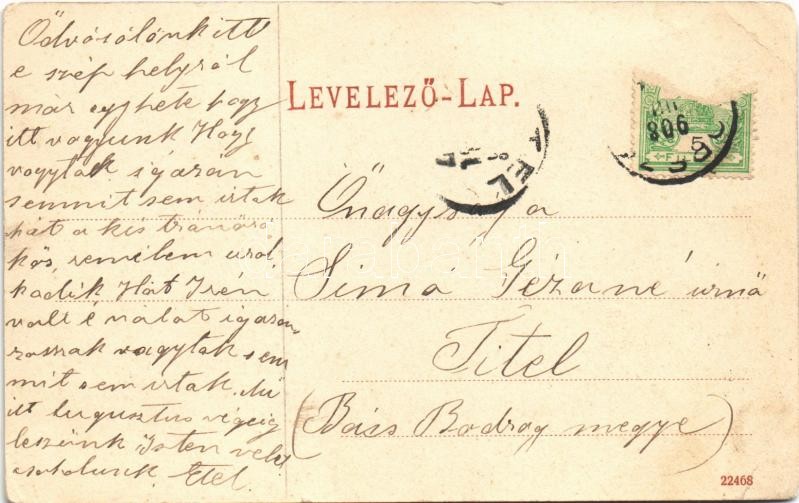 Üdvözölönk itt
e szép helyről
már egyhete hogy
itt vagyunk Hogy
vagytok igazán
semmit sem irtak
hát a kis tránörö
kös, remélem ural
kodik Hát Irén
volt é nálat igazán
rosszak vagytak sem
mit sem irtak. Mi
itt Augusztus végeig
leszünk Isten velet
csokolunk Etel.
LEVELEZŐ-LAP.
TITEL
908
Őnagysága
Simá Gézáné úrnő
Titel
(Bács Bodrog megye)
22468